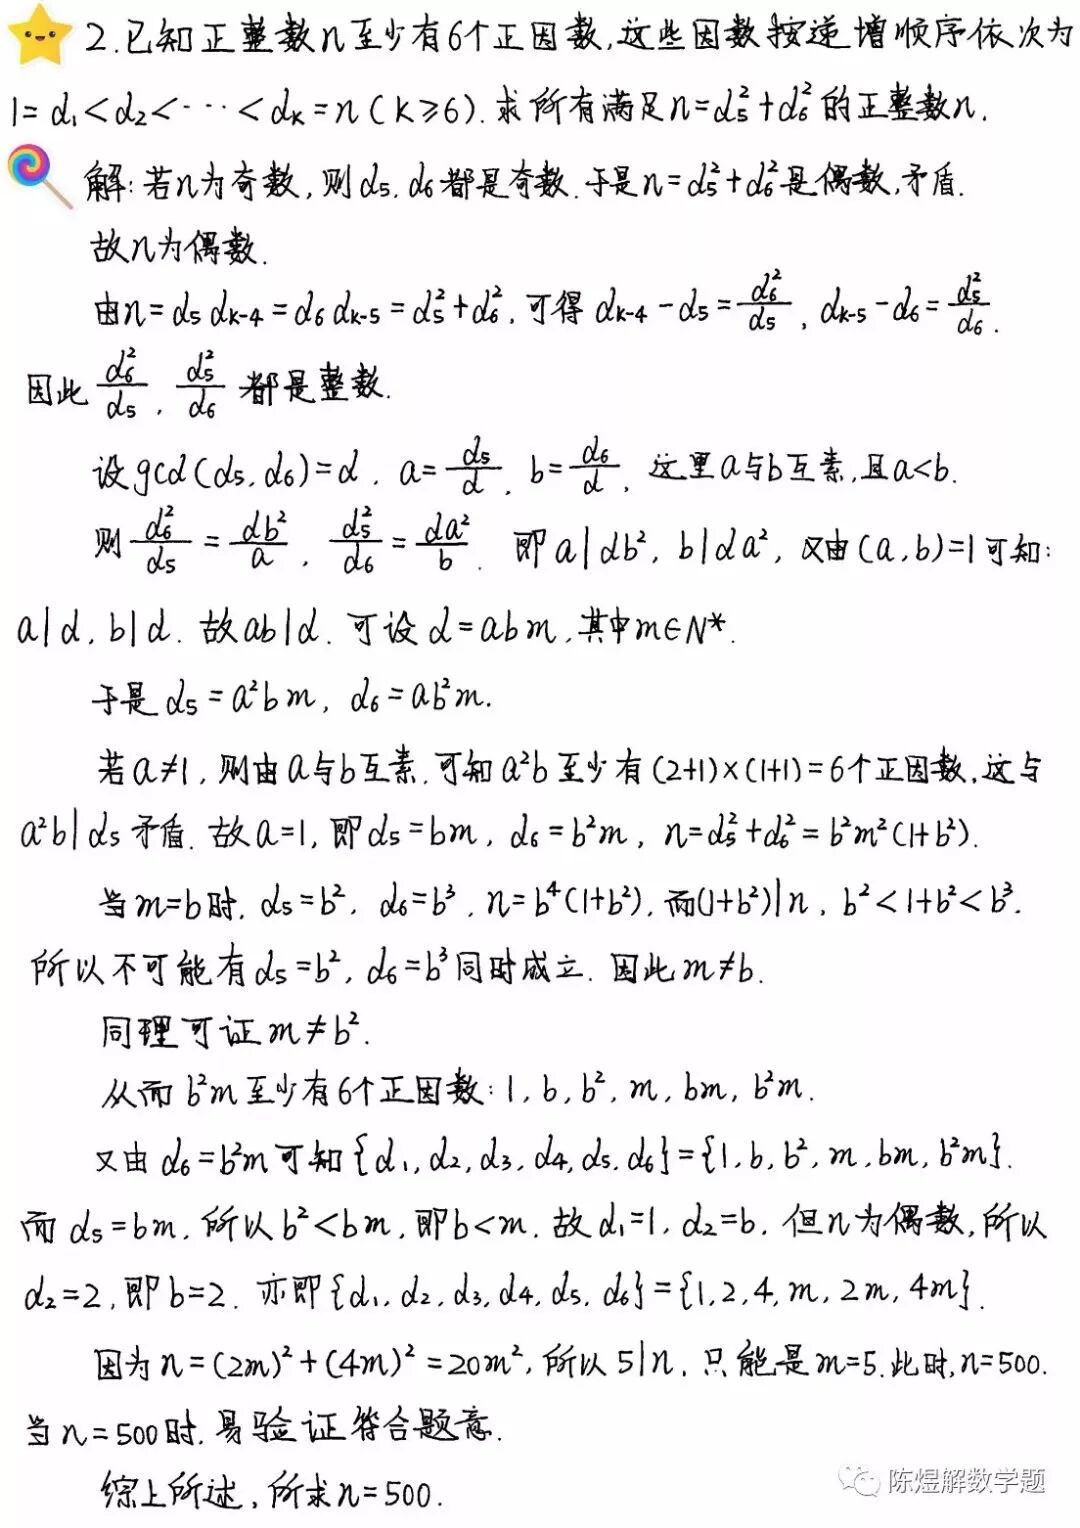 2.已知正整数n至少有6个正因数,这些因数按递增顺序依次为
1=d₁<d₂<···<dₖ=n(k≥6).求所有满足n=d₅²+d₆²的正整数n.
解:若n为奇数,则d₅,d₆都是奇数.于是n=d₅²+d₆²是偶数,矛盾.
故n为偶数.
由n=d₅dₖ₋₄=d₆dₖ₋₅=d₅²+d₆²,可得dₖ₋₄-d₅=d₆²/d₅,dₖ₋₅-d₆=d₅²/d₆.
因此d₆²/d₅,d₅²/d₆都是整数.
设gcd(d₅,d₆)=d,a=d₅/d,b=d₆/d,这里a与b互素,且a<b.
则d₆²/d₅=db²/a,d₅²/d₆=da²/b.即a|db²,b|da²,又由(a,b)=1可知:
a|d,b|d.故ab|d.可设d=abm,其中m∈N*.
于是d₅=a²bm,d₆=ab²m.
若a≠1,则由a与b互素,可知a²b至少有(2+1)×(1+1)=6个正因数,这与
a²b|d₅矛盾.故a=1,即d₅=bm,d₆=b²m,n=d₅²+d₆²=b²m²(1+b²).
当m=b时,d₅=b²,d₆=b³,n=b⁴(1+b²),而(1+b²)|n,b²<1+b²<b³.
所以不可能有d₅=b²,d₆=b³同时成立.因此m≠b.
同理可证m≠b².
从而b²m至少有6个正因数:1,b,b²,m,bm,b²m.
又由d₆=b²m可知{d₁,d₂,d₃,d₄,d₅,d₆}={1,b,b²,m,bm,b²m}.
而d₅=bm,所以b²<bm,即b<m.故d₁=1,d₂=b.但n为偶数,所以
d₂=2,即b=2.亦即{d₁,d₂,d₃,d₄,d₅,d₆}={1,2,4,m,2m,4m}.
因为n=(2m)²+(4m)²=20m²,所以5|n,只能是m=5.此时,n=500.
当n=500时,易验证符合题意.
综上所述,所求n=500.
陈煜解数学题